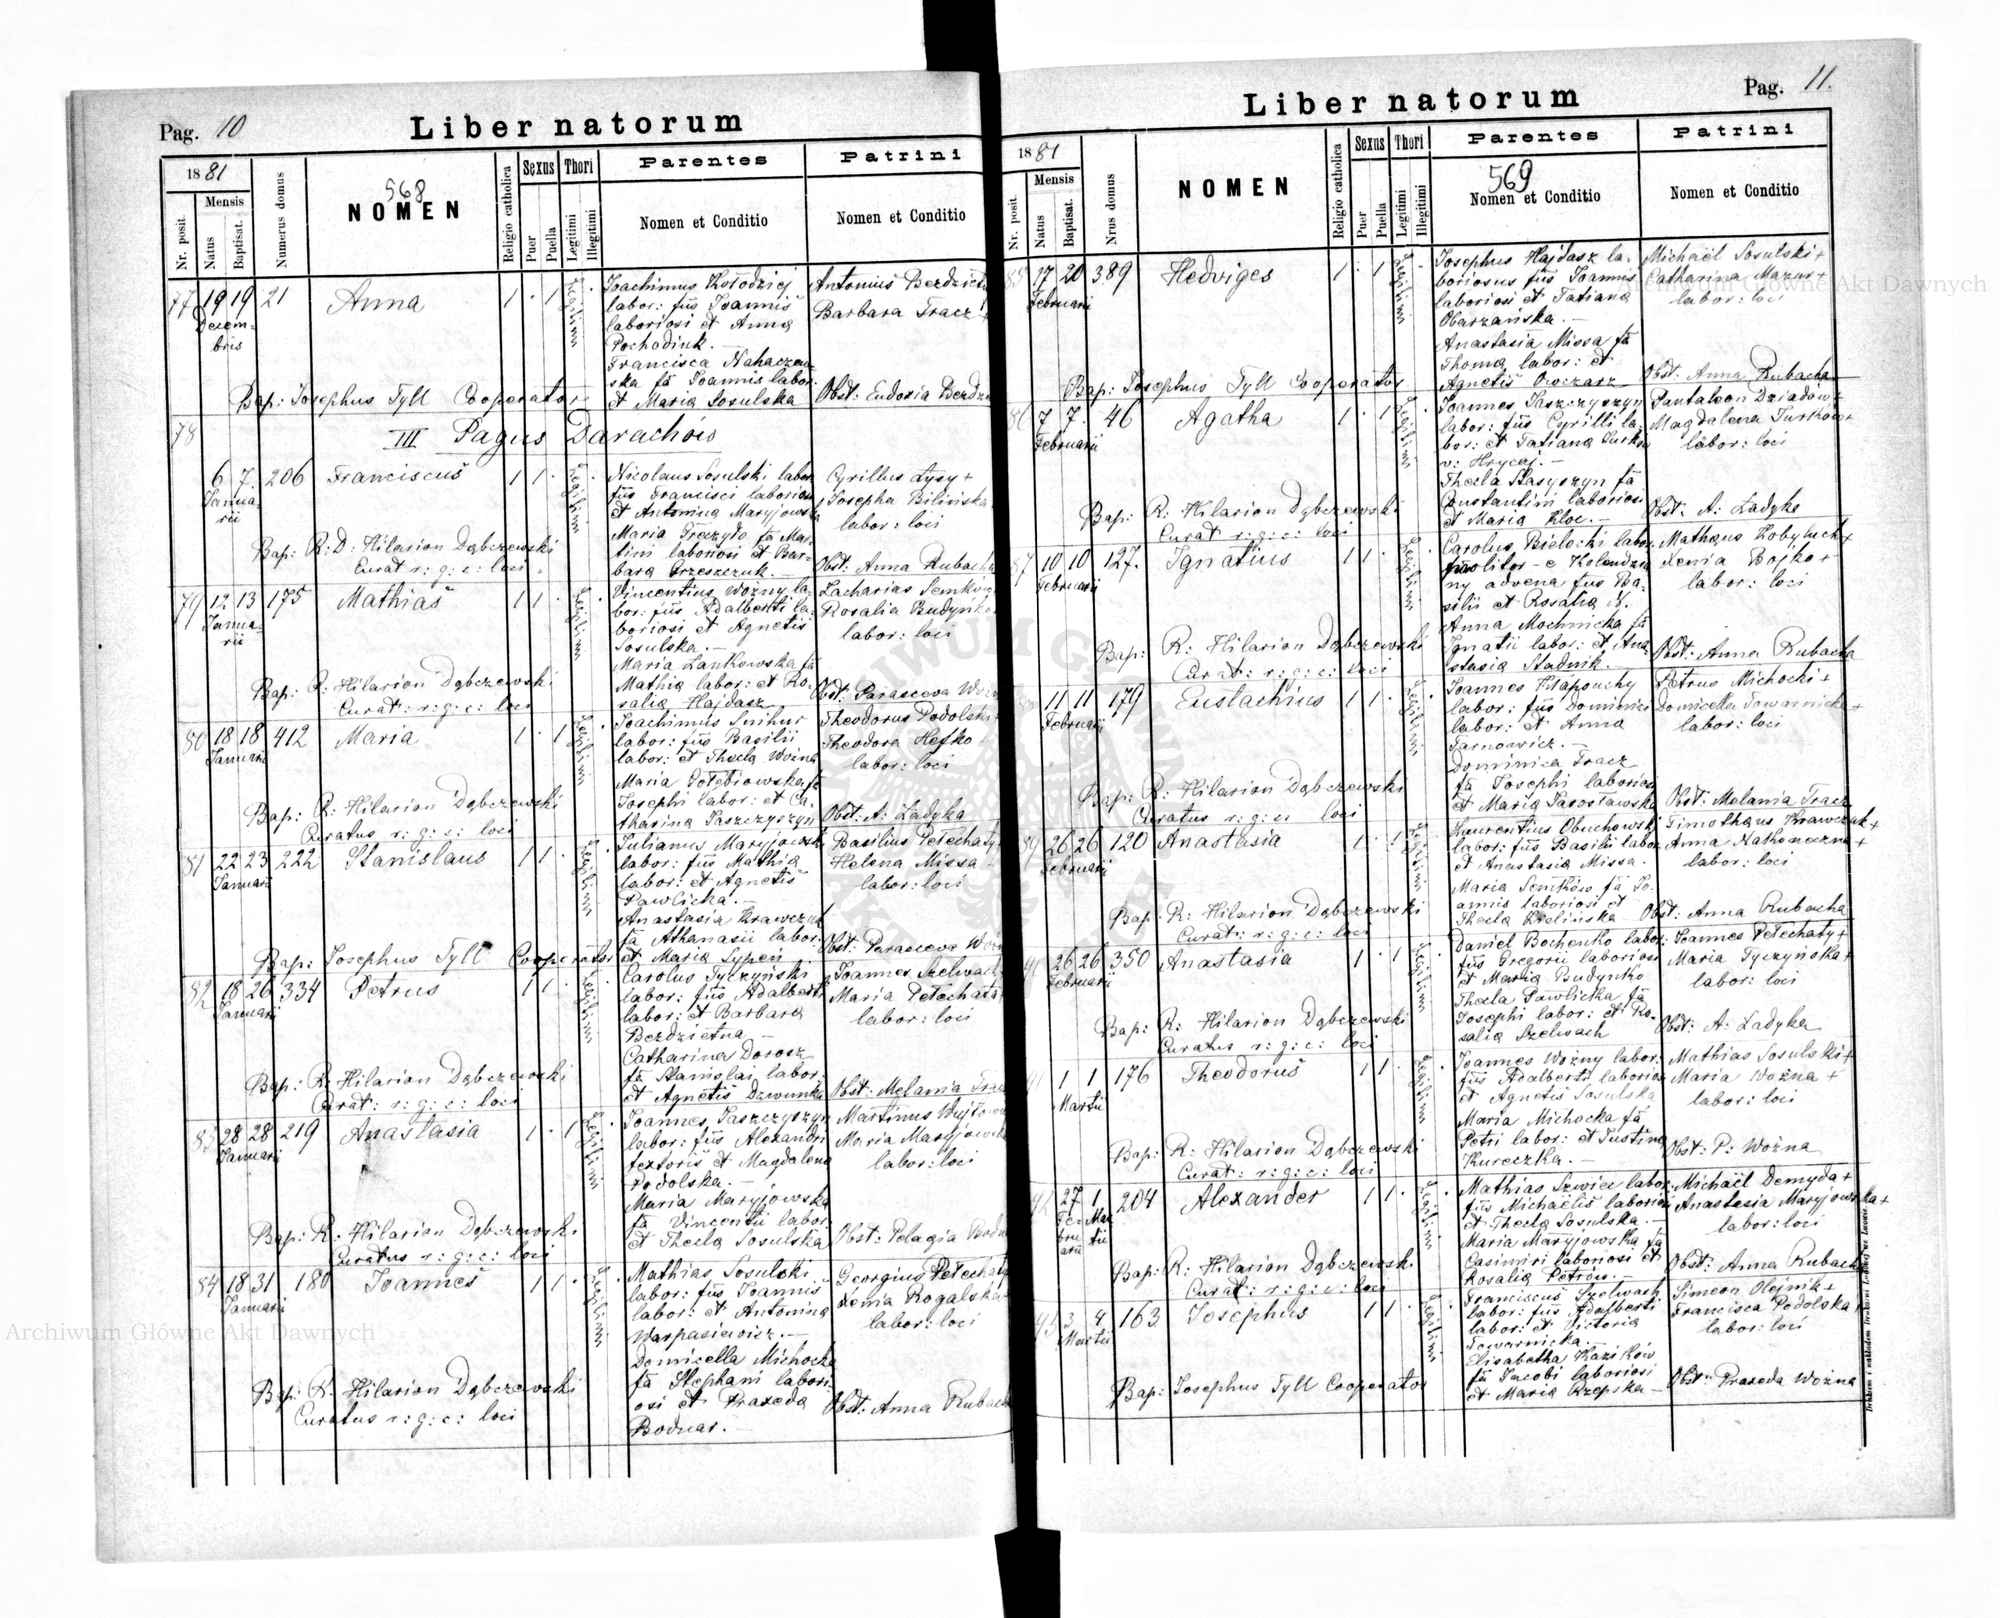 Pag. 10
Liber natorum
1881
Mensis
Nr. posit.
Natus
Baptisat.
Numerus domus
568
NOMEN
Religio catholica
Sexus
Puer
Puella
Thori
Legitimi
Illegitimi
Parentes
Nomen et Conditio
Patrini
Nomen et Conditio
77 19 19 21 Anna 1 · 1
Decem-
bris
Joachimus Kołodziej
labor: fius Joannis
laboriosi et Anna
Pochodiuk. —
Francisca Nahaczew-
ska fa Joannis labor:
et Maria Sosulska
Antonius
Barbara Tracz
Obst: Eudoxia
Bap: Josephus Tyll Cooperator
78
III Pagus Darachów
6 7 206 Franciscus 1 1 ·
Janua-
rii
Nicolaus Sosulski labor
fius Francisci laborios
et Antonina Maryjowska
Maria Grazyło fa Mar-
tini laboriosi et Bar-
bara Grzeszczuk. —
Cyrillus Łysy +
Josepha Bilińska
labor: loci
Obst: Anna Rubacha
Bap: R: D: Hilarion Dąbczewski
Curat r: g: c: loci
79 12 13 175 Mathias 1 1 ·
Janua-
rii
Vincentius Wozny la-
bor: fius Adalberti la-
boriosi et Agnetis
Sosulska. —
Maria Lankowska fa
Mathia labor: et Ro-
salia Hajdasz
Zacharias
Rosalia Budynko
labor: loci
Obst: Parasceva
Bap: R: Hilarion Dąbczewski
Curat: r: g: c: loci
80 18 18 412 Maria 1 · 1
Januarii
Joachimus Snihur
labor: fius Basilii
labor: et Thecla Woźna
Maria Gołębiowska fa
Josephi labor: et Ca-
tharina Jaszczyszyn
Theodorus Podolski
Theodora Hefko
labor: loci
Obst: A: Ladyka
Bap: R: Hilarion Dąbczewski
Curatus r: g: c: loci
81 22 23 222 Stanislaus 1 1 ·
Januarii
Julianus Maryjowski
labor: fius Mathia
labor: et Agnetis
Pawlicka. —
Anastasia Krawczuk
fa Athanasii labor:
et Maria Sypeń
Basilius Petechaty
Helena Missa
labor: loci
Obst: Parasceva
Bap: Josephus Tyll Cooperator
82 18 26 334 Petrus 1 1 ·
Januarii
Carolus Tyczyński
labor: fius Adalberti
labor: et Barbara
Bezdzietna —
Catharina Dorosz
fa Stanislai labor:
et Agnetis Dzwinka
Joannes Szelwach
Maria Petechata
labor: loci
Obst: Melania
Bap: R: Hilarion Dąbczewski
Curat: r: g: c: loci
83 28 28 219 Anastasia 1 · 1
Januarii
Joannes Jaszczyszyn
labor: fius Alexandri
textoris et Magdalena
Podolska. —
Maria Maryjowska
fa Vincentii labor:
et Thecla Sosulska
Martinus
Maria
labor: loci
Obst: Pelagia
Bap: R: Hilarion Dąbczewski
Curatus r: g: c: loci
84 18 31 180 Joannes 1 1 ·
Januarii
Mathias Sosulski
labor: fius Joannis
labor: et Antonina
Warpasiewicz. —
Domicella Michocka
fa Stephani labori-
osi et Praxeda
Bodnar. —
Georgius Petechaty
Xenia Rogalska
labor: loci
Obst: Anna Rubacha
Bap: R: Hilarion Dąbczewski
Curatus r: g: c: loci
Liber natorum
Pag. 11.
1881
Mensis
Nr. posit.
Natus
Baptisat.
Nrus domus
NOMEN
Religio catholica
Sexus
Puer
Puella
Thori
Legitimi
Illegitimi
Parentes
569
Nomen et Conditio
Patrini
Nomen et Conditio
85 17 20 389 Hedviges 1 · 1
Februarii
Josephus Hajdasz la-
boriosus fius Joannis
laboriosi et Tatiana
Obarzańska. —
Anastasia Missa fa
Thoma labor: et
Agnetis Owczarz
Michaël Sosulski +
Catharina Mazur +
labor: loci
Obst: Anna Rubacha
Bap: Josephus Tyll Cooperator
86 7 7. 46 Agatha 1 · 1
Februarii
Joannes Jaszczyszyn
labor: fius Cyrilli la-
bor: et Tatiana
v: Hrycaj. —
Thecla Basyszyn fa
Constantini laboriosi
et Maria Kloc. —
Pantaleon Dziadów
Magdalena Turków +
labor: loci
Obst: A: Ladyka
Bap: R: Hilarion Dąbczewski
Curat r: g: c: loci
87 10 10 127. Ignatius 1 1 ·
Februarii
Carolus Bielecki labor
molitor e
ny advena fius Ba-
silii et Rosalia N.
Anna Mochnicka fa
Ignatii labor: et Ana-
stasia Stadnik. —
Mathaus Kobyluch +
Xenia Bojko +
labor: loci
Obst: Anna Rubacha
Bap: R: Hilarion Dąbczewski
Curat: r: g: c: loci
11 11 179 Eustachius 1 1 ·
Februarii
Joannes Kłapouchy
labor: fius Dominici
labor: et Anna
Tarnowicz. —
Dominica Tracz
fa Josephi laboriosi
et Maria Jarosławska
Petrus Michocki +
Domicella Towarnicka +
labor: loci
Obst: Melania Tracz
Bap: R: Hilarion Dąbczewski
Curatus r: g: c: loci
89 26 26 120 Anastasia 1 · 1
Februarii
Laurentius Obuchowski
labor: fius Basilii labor
et Anastasia Missa.
Maria Semków fa Jo-
annis laboriosi et
Thecla
Timothaus Krawczuk +
Anna
labor: loci
Obst: Anna Rubacha
Bap: R: Hilarion Dąbczewski
Curat: r: g: c: loci
90 26 26 350 Anastasia 1 · 1
Februarii
Daniel Bochenko labor:
fius Gregorii laboriosi
et Maria Budynko
Thecla Pawlicka fa
Josephi labor: et Ro-
salia Szelwach
Joannes Petechaty +
Maria Tyczyńska +
labor: loci
Obst: A: Ladyka
Bap: R: Hilarion Dąbczewski
Curatus r: g: c: loci
1 1 176 Theodorus 1 1 ·
Martii
Joannes Wozny labor:
fius Adalberti laboriosi
et Agnetis Sosulska
Maria Michocka fa
Petri labor: et Justina
Kureczka. —
Mathias Sosulski +
Maria Woźna +
labor: loci
Obst: P: Woźna
Bap: R: Hilarion Dąbczewski
Curat: r: g: c: loci
92 27 1 204 Alexander 1 1 ·
Fe- Mar-
bru tii
arii
Mathias Szwiec labor:
fius Michaëlis laboriosi
et Thecla Sosulska. —
Maria Maryjowska fa
Casimiri laboriosi et
Rosalia Petrów. —
Michaël Demyda +
Anastasia Maryjowska +
labor: loci
Obst: Anna Rubacha
Bap: R: Hilarion Dąbczewski
Curat: r: g: c: loci
93 3 4 163 Josephus 1 1 ·
Martii
Franciscus Szelwach
labor: fius Adalberti
labor: et Victoria
Towarnicka. —
Elisabetha Kazików
fa Jacobi laboriosi
et Maria Rzepska —
Simeon Olejnik +
Francisca Podolska +
labor: loci
Obst: Praxeda Woźna
Bap: Josephus Tyll Cooperator
Archiwum Główne Akt Dawnych
Archiwum Główne Akt Dawnych